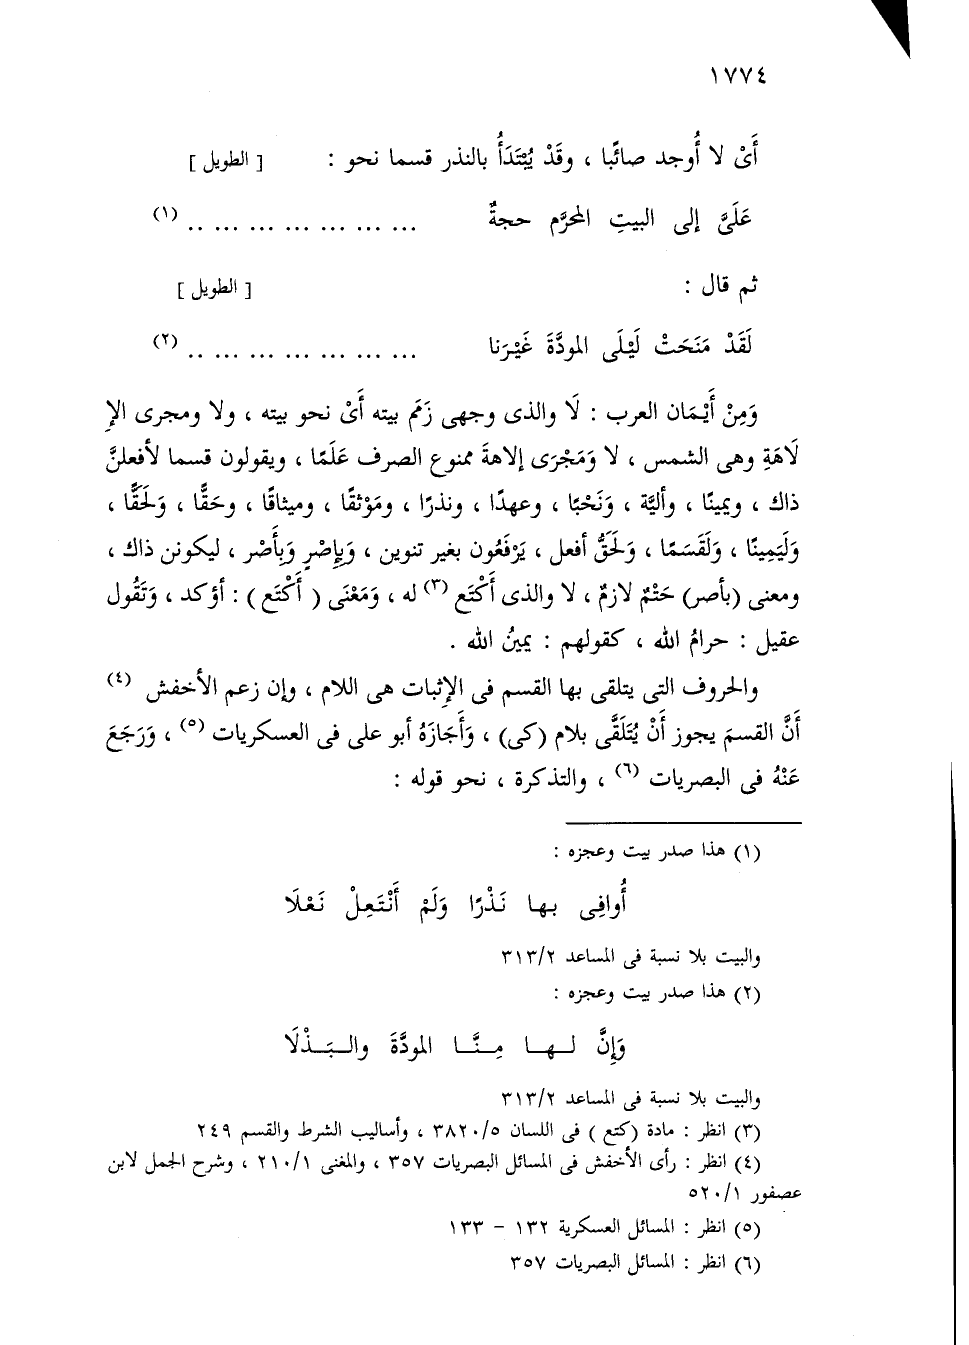 ١٧٧٤
أَىْ لا أُوجد صائبًا ، وقَدْ يُبْتَدَأُ بالنذر قسما نحو : [ الطويل ]
عَلَىَّ إلى البيتِ المحرَّم حجةٌ ... ... ... ... ... ... .. (١)
ثم قال : [ الطويل ]
لَقَدْ مَنَحَتْ لَيْلَى المودَّةَ غَيْرَنا ... ... ... ... ... ... .. (٢)
وَمِنْ أَيْمَان العرب : لَا والذى وجهى زَمَم بيته أَىْ نحو بيته ، ولا ومجرى الإِ
لَاهَةِ وهى الشمس ، لا وَمَجْرَى إلاهةَ ممنوع الصرف عَلَمًا ، ويقولون قسما لأفعلنَّ
ذاك ، ويمينًا ، وأليَّة ، وَنَحْبًا ، وعهدًا ، ونذرًا ، ومَوْثقًا ، وميثاقًا ، وحَقًّا ، وَلَحَقًّا ،
وَلَيَمِينًا ، وَلَقَسَمًا ، وَلَحَقُّ أفعل ، يَرْفَعُون بغير تنوين ، وَبِإصْرٍ وَبِأَصْر ، ليكونن ذاك ،
ومعنى (بأصر) حَتْمٌ لازمٌ ، لا والذى أَكْتَع (٣) له ، وَمَعْنَى ( أَكْتَع ) : أؤكد ، وَتَقُول
عقيل : حرامُ الله ، كقولهم : يمينُ الله .
والحروف التى يتلقى بها القسم فى الإثبات هى اللام ، وإن زعم الأخفش (٤)
أَنَّ القسمَ يجوز أَنْ يُتَلَقَّى بلام (كى) ، وَأَجَازَهُ أبو على فى العسكريات (٥) ، وَرَجَعَ
عَنْهُ فى البصريات (٦) ، والتذكرة ، نحو قوله :
(١) هذا صدر بيت وعجزه :
أُوافِى بها نَذْرًا وَلَمْ أَنْتَعِلْ نَعْلَا
والبيت بلا نسبة فى المساعد ٣١٣/٢
(٢) هذا صدر بيت وعجزه :
وَإِنَّ لــهــا مِــنَّــا المودَّةَ والــبَــذْلَا
والبيت بلا نسبة فى المساعد ٣١٣/٢
(٣) انظر : مادة (كتع ) فى اللسان ٣٨٢٠/٥ ، وأساليب الشرط والقسم ٢٤٩
(٤) انظر : رأى الأخفش فى المسائل البصريات ٣٥٧ ، والمغنى ٢١٠/١ ، وشرح الجمل لابن
عصفور ٥٢٠/١
(٥) انظر : المسائل العسكرية ١٣٢ – ١٣٣
(٦) انظر : المسائل البصريات ٣٥٧